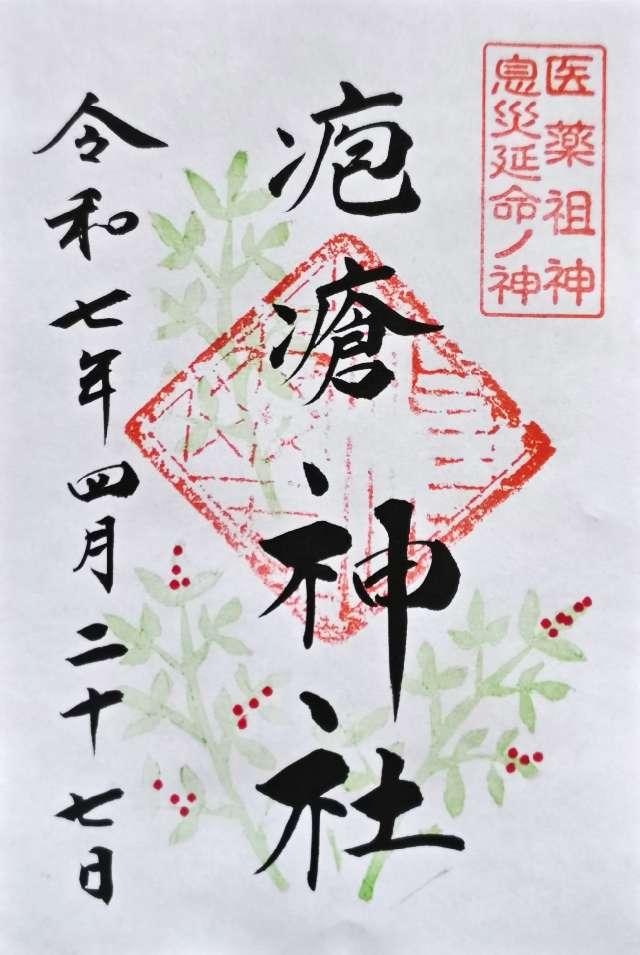 医薬祖神
息災延命ノ神
疱瘡神社
令和七年四月二十七日